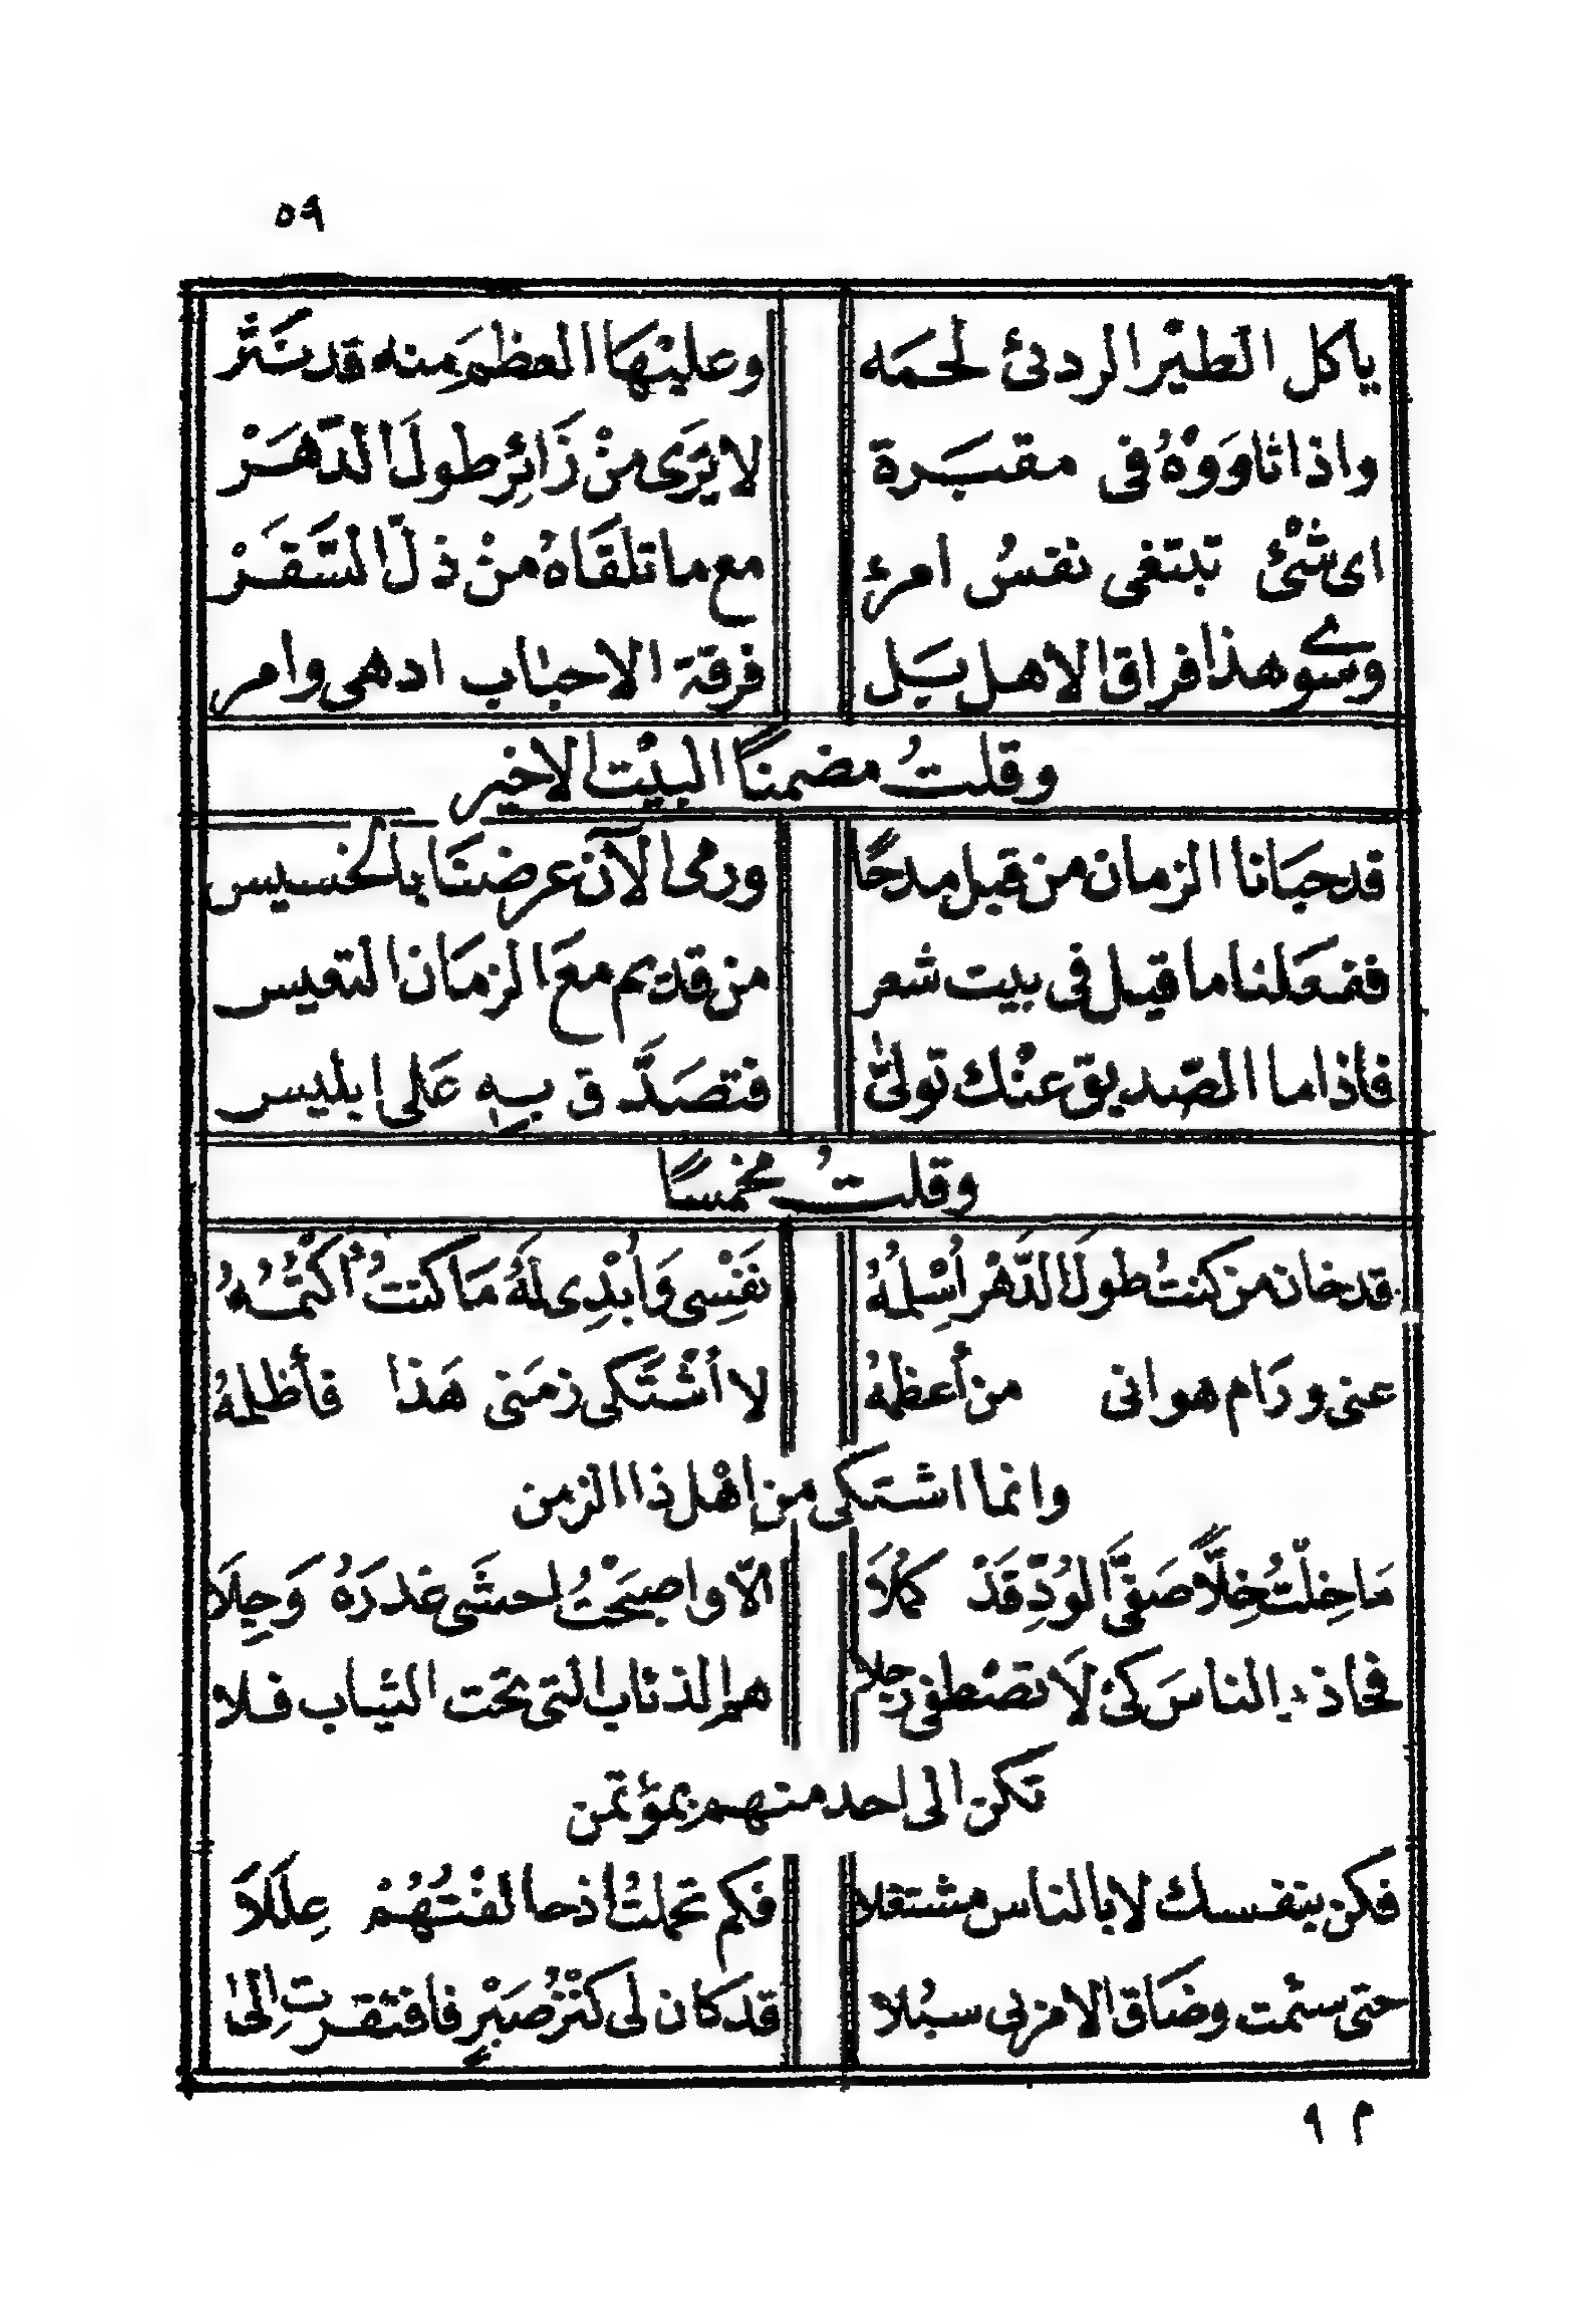 ٥٩
ياكل الطيْر الردئ لحمَه وعليْهَا العظمَ مِنه قد نَثَر
واذا ثاوَوْهُ فى مقبَرة لا يَرَى منْ زَائِرٍ طولَ الدّهَرْ
اى شئْ تبتغى نفسُ امرئ مع ما تلقَاهُ منْ ذلّ السَّقَرْ
وسوى هذا فراق الاهل بَل فرقة الاحبٰاب ادهى وامر
وقلتُ مضمنًا البيْت الاخير
قد حبَانا الزمان من قبل مدحًا ورمى الآن عرضنَا بالخسيس
ففعَلنا ما قيل فى بيت شعر من قديم معَ الزمَان التعيس
فاذا ما الصّديق عنْك تولىّٰ فتصَدَّق بِهِ عَلى ابليس
وقلتُ مخمسًا
قد خان من كنتُ طولَ الدَّهْر اُسْلِمُهُ نَفْسِى وَاُبْدِى لَهُ مَا كنتُ أكْتُمُهُ
عنى ورَام هوانى من أعظمهُ لا اُشْتَكى زمَنى هَذا فأظلمهُ
وانما اشتكى من اهْل ذا الزمن
مَا خِلْتُ خِلًّا صَفىَّ الوُدِّ قَدْ كمُلَا الّا واصبَحْتُ احشَى غدرَهُ وَجِلَا
فحاذر الناسَ كىْ لَا تصْطفى رجلا هم الذئاب التى تحت الثياب فلا
تكن الى احد منهم بمؤتمن
فكن بنفسك لا بالناس مشتغلا فكم تحملتُ اذ حالفْتُهُمْ عِلَلاَ
حتى سئمت وضَاق الامر بى سبُلا قد كان لى كنْزُ صَبْرٍ فافتقرت اِلىٰ
م ٩